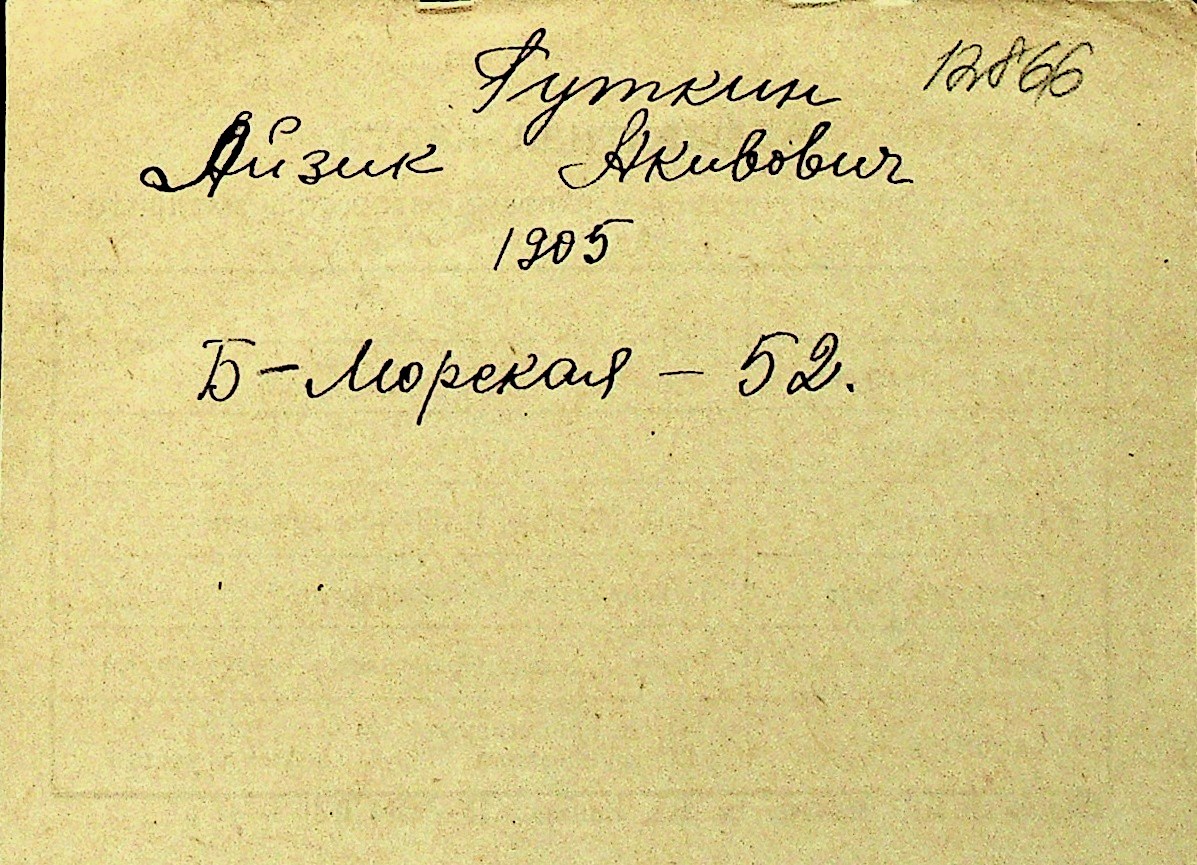 Гуткин 12866
Айзик Акивович
1905
Б-Морская - 52.